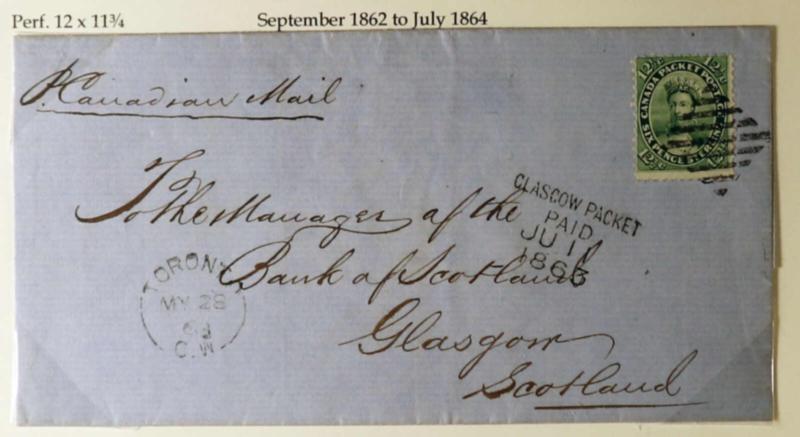 Perf. 12 x 11¾
September 1862 to July 1864
P. Canadian Mail
12½c
12½c
CANADA PACKET POSTAGE
SIX PENCE STERLING
12½c
12½c
To the Manager of the
Bank of Scotland
Glasgow
Scotland
GLASGOW PACKET
PAID
JU 11
1863
TORONTO
MY 28
63
C.W